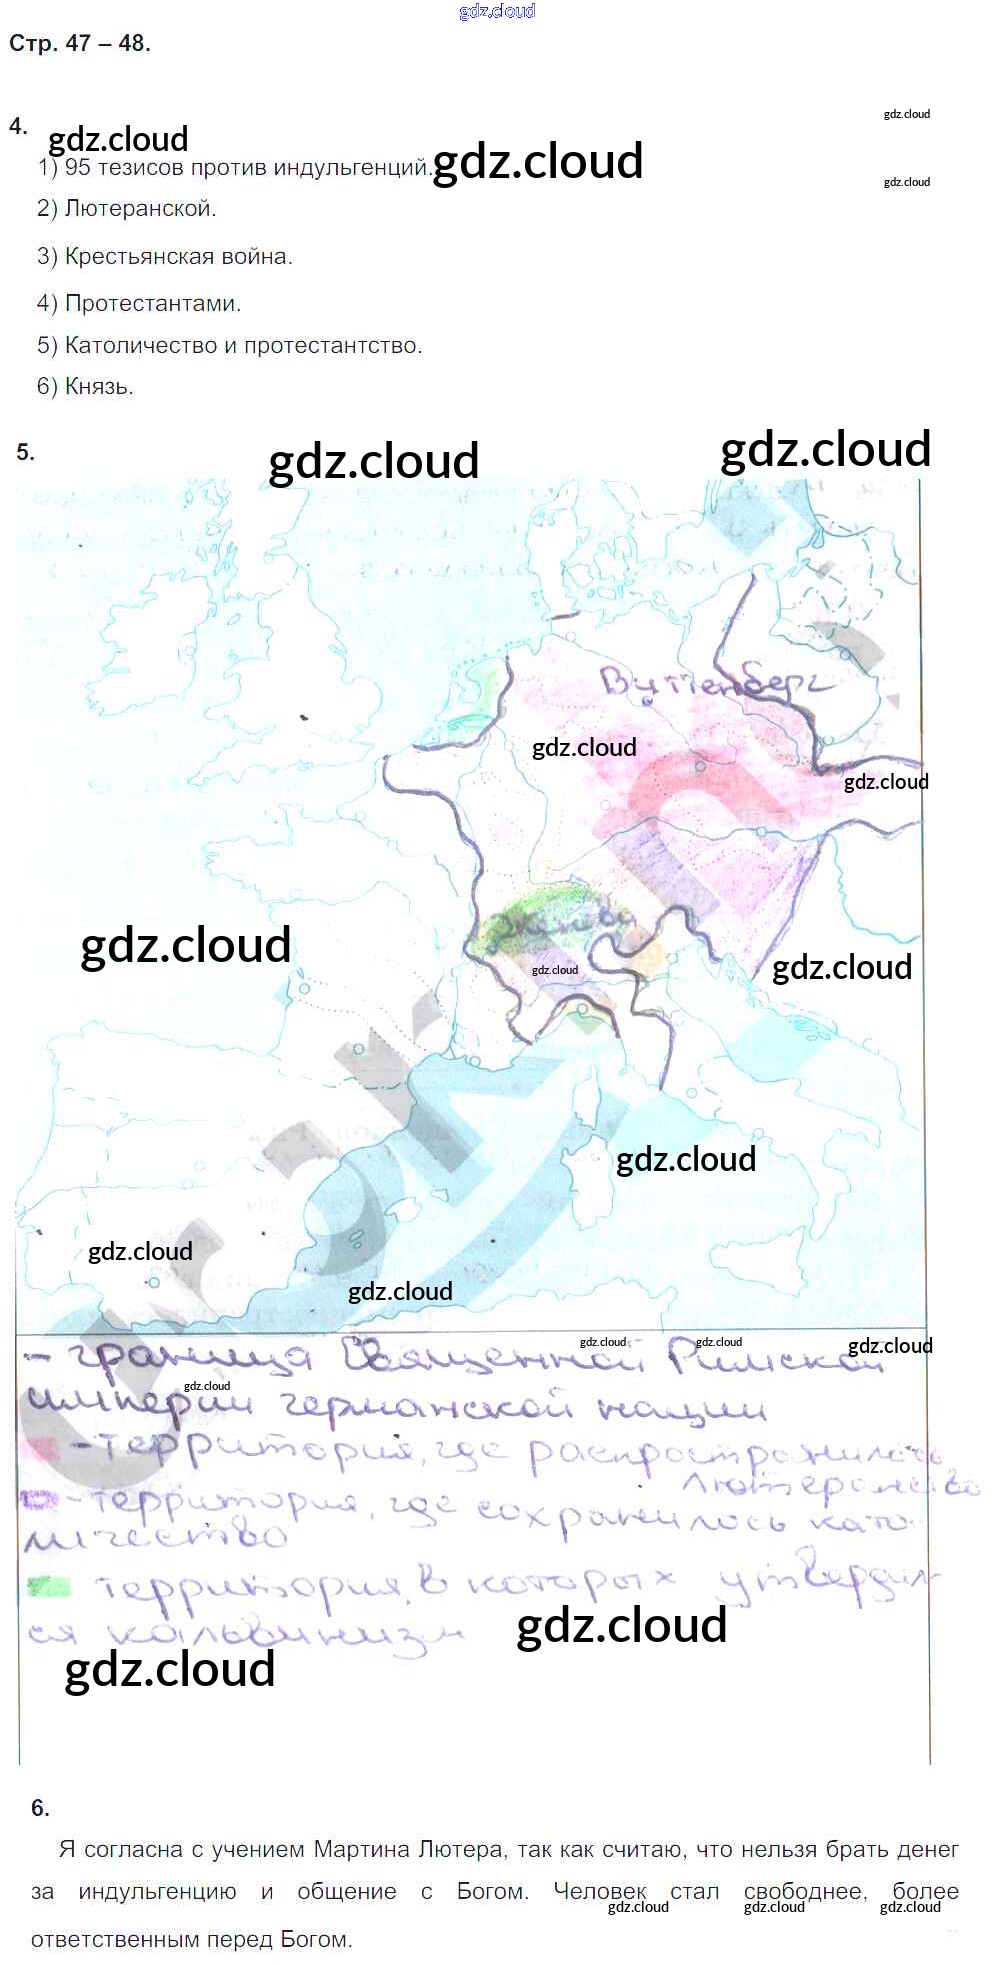 gdz.cloud
Стр. 47 – 48.
4.
gdz.cloud
gdz.cloud
gdz.cloud
gdz.cloud
1) 95 тезисов против индульгенций.
2) Лютеранской.
3) Крестьянская война.
4) Протестантами.
5) Католичество и протестантство.
6) Князь.
5.
gdz.cloud
gdz.cloud
Виттенберг
gdz.cloud
gdz.cloud
Женева
gdz.cloud
gdz.cloud
gdz.cloud
gdz.cloud
gdz.cloud
gdz.cloud
- граница Священной Римской
gdz.cloud
gdz.cloud
gdz.cloud
gdz.cloud
империи германской нации
- территория, где распространилось
лютеранство
- территория, где сохранилось като-
личество
территория, в которых утвердил-
ся кальвинизм
gdz.cloud
gdz.cloud
6.
Я согласна с учением Мартина Лютера, так как считаю, что нельзя брать денег
за индульгенцию и общение с Богом. Человек стал свободнее, более
gdz.cloud
gdz.cloud
gdz.cloud
ответственным перед Богом.